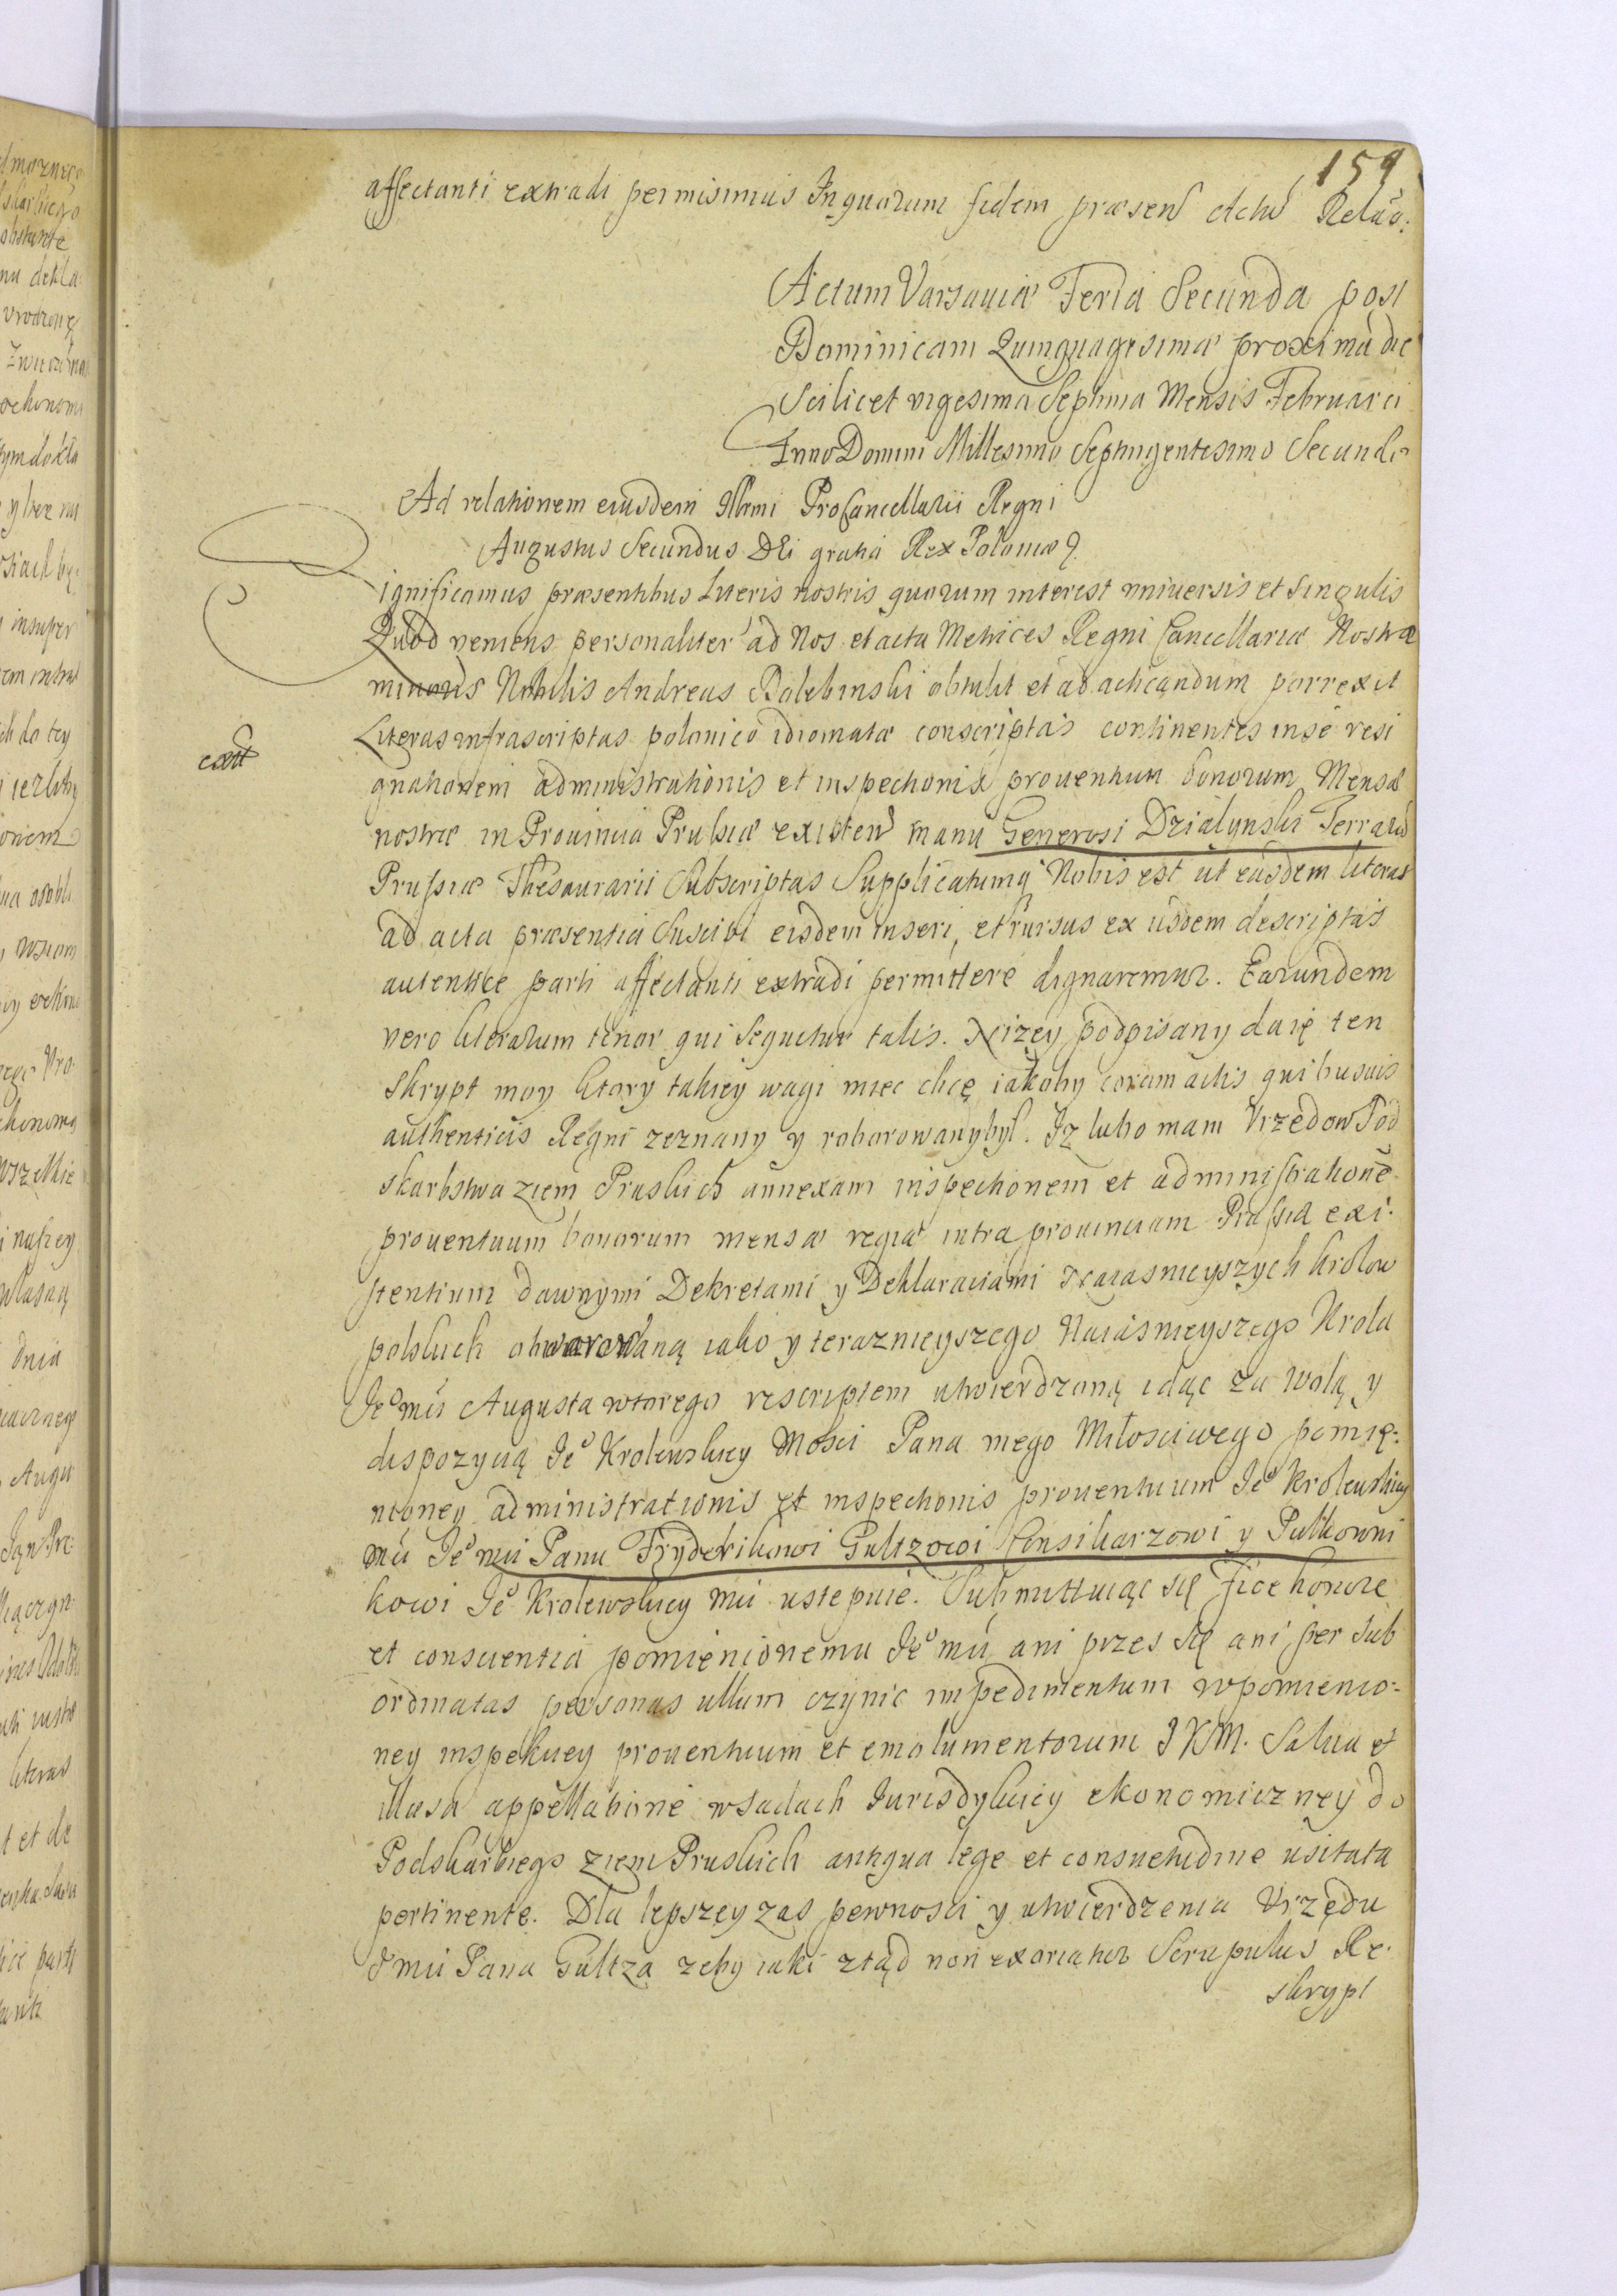 159
affectanti extradi permisimus Inquorum fidem præsens Actus Relão:
Actum Varsauiæ Feria Secunda post
Dominicam Quinquagesimæ proxima die
Scilicet vigesima Septima Mensis Februarii
Anno Domini Millesimo Septingentesimo Secundo
Ad relationem eiusdem Illmi ProCancellarii Regni
Augustus Secundus DEi gratia Rex Poloniæ
ignificamus præsentibus Literis nostris quorum interest vniuersis et Singulis
Quod veniens personaliter ad Nos et acta Metrices Regni Cancellariæ Nostræ
minoris Nobilis Andreas Bolebinski obtulit et ad acticandum porrexit
Literas infrascriptas polonico idiomate conscriptas continentes inse resi
gnationem administrationis et inspectionis prouentuum bonorum Mensæ
nostræ in Prouincia Prussiæ existen manu Generosi Dzialynski Terrarū
Prussiæ Thesaurarii Subscriptas Supplicatumq Nobis est ut easdem literas
ad acta præsentia Suscipi eisdem inseri, et rursus ex iisdem descriptas
autentice parti affectanti extradi permittere dignaremur. Earundem
vero literarum tenor qui Sequitur talis. Nizey podpisany daię ten
Skrypt moy ktory takiey wagi miec chcę iakoby coram actis quibusuis
authenticis Regni zeznany y roborowany był. Iz lubo mam Vrzędow Pod
skarbstwa ziem Pruskich annexam inspectionem et administrationē
prouentuum bonorum mensæ regiæ intra prouinciam Prussiæ exi:
stentium dawnymi Dekretami y Deklaraciami Naiasnieyszych krolow
polskich obwarowaną iako y teraznieyszego Naiasnieyszego Krola
Jeo mci Augusta wtorego rescriptem utwierdzoną idąc za wolą y
dispozycią Jeo Krolewskiey Mosci Pana mego Miłosciwego pomię:
nioney administrationis et inspectionis prouentuum Jeo Krolewskiey
Mci Jeo mci Panu Fryderikowi Gultzowi Consiliarzowi y Pułkowni
kowi Jeo Krolewskiey Mci ustępuie. Submittuiąc się fide honore
et conscientia pomienionemu Jeo mci ani przes się ani per sub
ordinatas personas ullum czynic impedimentum wpomienio:
ney inspekciey prouentuum et emolumentorum J K M. Salua et
illæsa appellatione wsadach Jurisdykciey ekonomiczney do
Podskarbiego Ziem Pruskich antiqua lege et consuetudine usitata
pertinente. Dla lepszey zas pewnosci y utwierdzenia Vrzędu
Jmci Pana Gultza zeby iaki ztąd non exoriatur Scrupulus Re:
skrypt